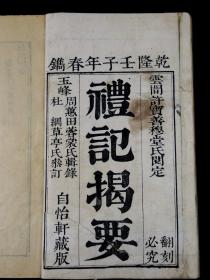 乾隆壬子年春鐫
雲間許寶善穆堂氏閱定
禮記揭要
翻刻必究
玉峰周蕙田蓉裳氏輯錄
杜綱草亭氏叅訂
自怡軒藏版